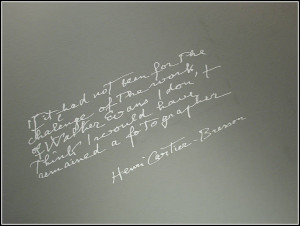 If it had not been for the
challenge of the work
of Walker Evans I don't
think I would have
remained a fotographer
Henri Cartier-Bresson